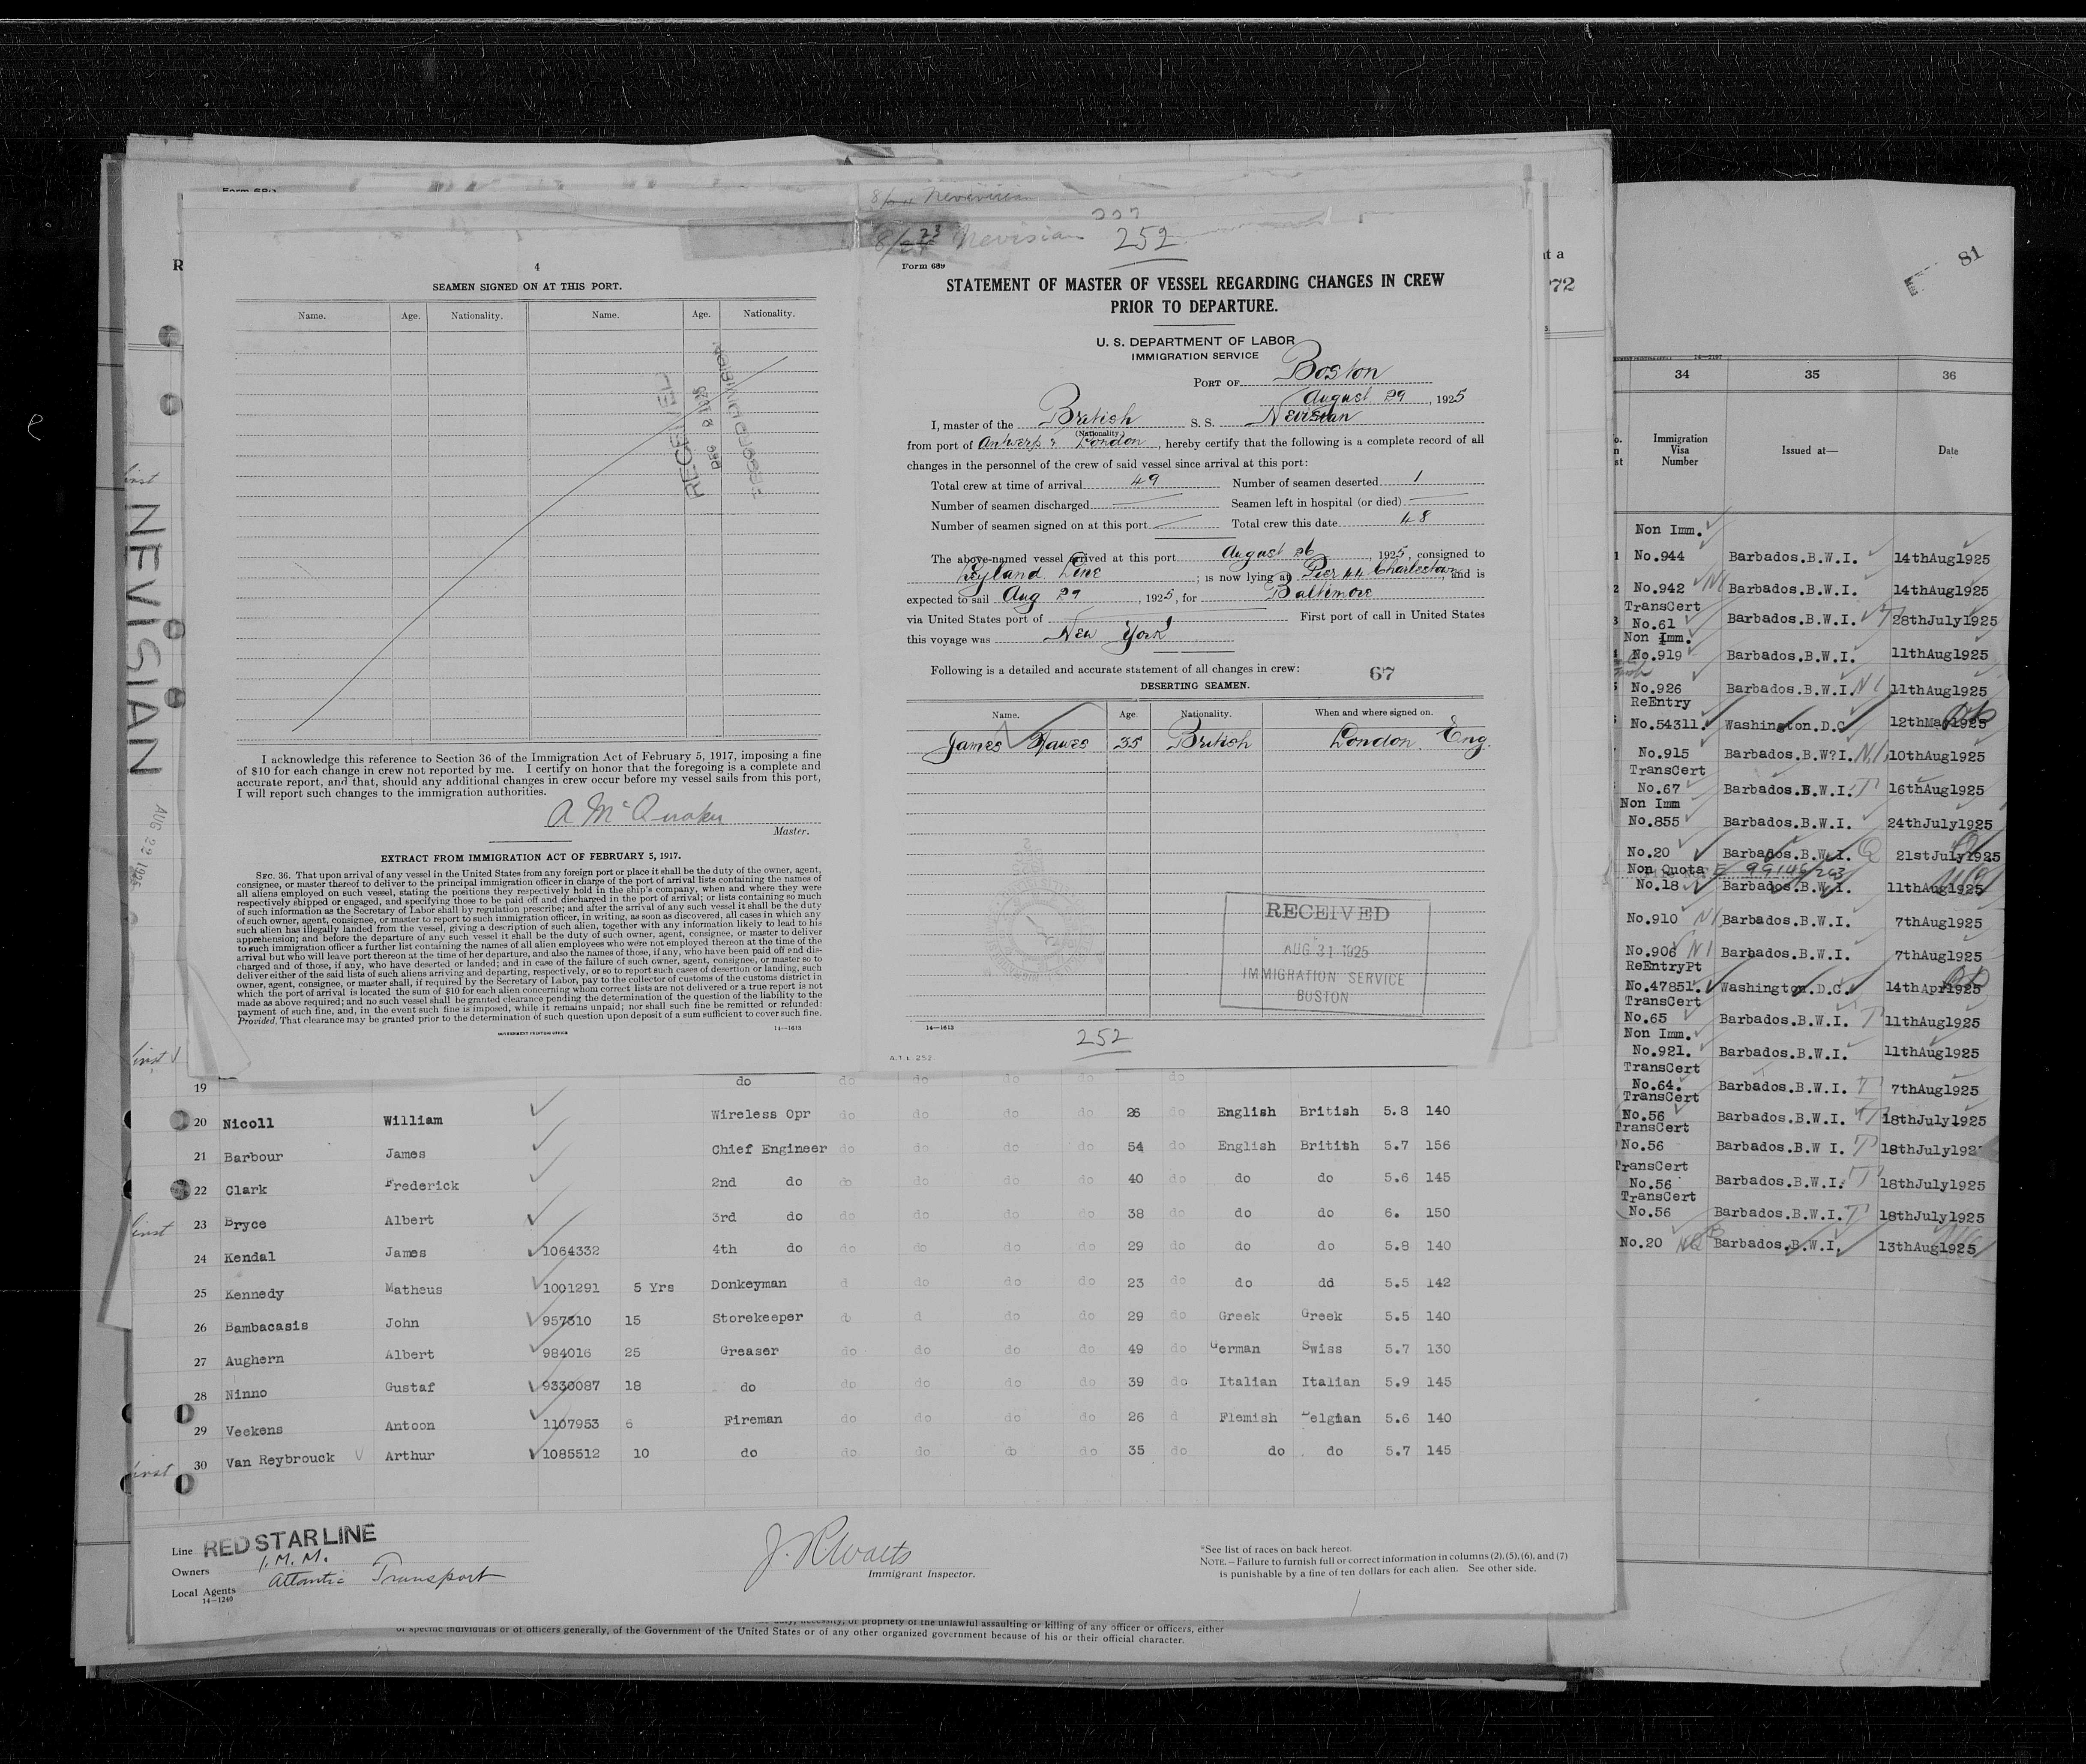 8/23 Nevisian 252
4
SEAMEN SIGNED ON AT THIS PORT.
Name. Age. Nationality. Name. Age. Nationality.
I acknowledge this reference to Section 36 of the Immigration Act of February 5, 1917, imposing a fine
of $10 for each change in crew not reported by me. I certify on honor that the foregoing is a complete and
accurate report, and that, should any additional changes in crew occur before my vessel sails from this port,
I will report such changes to the immigration authorities.
A McQuaker
Master.
EXTRACT FROM IMMIGRATION ACT OF FEBRUARY 5, 1917.
SEC. 36. That upon arrival of any vessel in the United States from any foreign port or place it shall be the duty of the owner, agent,
consignee, or master thereof to deliver to the principal immigration officer in charge of the port of arrival lists containing the names of
all aliens employed on such vessel, stating the positions they respectively hold in the ship's company, when and where they were
respectively shipped or engaged, and specifying those to be paid off and discharged in the port of arrival; or lists containing so much
of such information as the Secretary of Labor shall by regulation prescribe; and after the arrival of any such vessel it shall be the duty
of such owner, agent, consignee, or master to report to such immigration officer, in writing, as soon as discovered, all cases in which any
such alien has illegally landed from the vessel, giving a description of such alien, together with any information likely to lead to his
apprehension; and before the departure of any such vessel it shall be the duty of such owner, agent, consignee, or master to deliver
to such immigration officer a further list containing the names of all alien employees who were not employed thereon at the time of the
arrival but who will leave port thereon at the time of her departure, and also the names of those, if any, who have been paid off and dis-
charged and of those, if any, who have deserted or landed; and in case of the failure of such owner, agent, consignee, or master so to
deliver either of the said lists of such aliens arriving and departing, respectively, or so to report such cases of desertion or landing, such
owner, agent, consignee, or master shall, if required by the Secretary of Labor, pay to the collector of customs of the customs district in
which the port of arrival is located the sum of $10 for each alien concerning whom correct lists are not delivered or a true report is not
made as above required; and no such vessel shall be granted clearance pending the determination of the question of the liability to the
payment of such fine, and, in the event such fine is imposed, while it remains unpaid; nor shall such fine be remitted or refunded:
Provided, That clearance may be granted prior to the determination of such question upon deposit of a sum sufficient to cover such fine.
GOVERNMENT PRINTING OFFICE 14—1613
Form 689
STATEMENT OF MASTER OF VESSEL REGARDING CHANGES IN CREW
PRIOR TO DEPARTURE.
U. S. DEPARTMENT OF LABOR
IMMIGRATION SERVICE
PORT OF Boston
August 29, 1925
I, master of the British S. S. Nevisian
(Nationality)
from port of Antwerp & London, hereby certify that the following is a complete record of all
changes in the personnel of the crew of said vessel since arrival at this port:
Total crew at time of arrival 49 Number of seamen deserted 1
Number of seamen discharged Seamen left in hospital (or died)
Number of seamen signed on at this port Total crew this date 48
The above-named vessel arrived at this port August 26, 1925, consigned to
Leyland Line; is now lying at Pier 44 Charlestown, and is
expected to sail Aug 29, 1925, for Baltimore
via United States port of First port of call in United States
this voyage was New York
Following is a detailed and accurate statement of all changes in crew: 67
DESERTING SEAMEN.
Name. Age. Nationality. When and where signed on.
James Hawes 35 British London Eng.
RECEIVED
AUG 31 1925
IMMIGRATION SERVICE
BOSTON
14—1613
252
A.T.L 252
NEVISIAN AUG 22 1925
19 do do do do do do
20 Nicoll William Wireless Opr do do do do 26 do English British 5.8 140
21 Barbour James Chief Engineer do do do do 54 do English Britith 5.7 156
22 Clark Frederick 2nd do do do do do 40 do do do 5.6 145
23 Bryce Albert 3rd do do do do do 38 do do do 6. 150
24 Kendal James 1064332 4th do do do do do 29 do do do 5.8 140
25 Kennedy Matheus 1001291 5 Yrs Donkeyman d do do do 23 do do dd 5.5 142
26 Bambacasis John 957510 15 Storekeeper do d do do 29 do Greek Greek 5.5 140
27 Aughern Albert 984016 25 Greaser do do do do 49 do German Swiss 5.7 130
28 Ninno Gustaf 9330087 18 do do do do do 39 do Italian Italian 5.9 145
29 Veekens Antoon 1107953 6 Fireman do do do do 26 d Flemish Belgian 5.6 140
30 Van Reybrouck Arthur 1085512 10 do do do do do 35 do do do 5.7 145
Line RED STAR LINE
Owners I.M.M.
Local Agents Atlantic Transport
14—1240
Immigrant Inspector.
*See list of races on back hereof.
NOTE.—Failure to furnish full or correct information in columns (2), (5), (6), and (7)
is punishable by a fine of ten dollars for each alien. See other side.
propriety of the unlawful assaulting or killing of any officer or officers, either
of specific individuals or of officers generally, of the Government of the United States or of any other organized government because of his or their official character.
81
34 35 36
Immigration Visa Number Issued at— Date
Non Imm.
No.944 Barbados.B.W.I. 14thAug1925
No.942 NI Barbados.B.W.I. 14thAug1925
TransCert
No.61 Barbados.B.W.I. 28thJuly1925
Non Imm.
No.919 Barbados.B.W.I. 11thAug1925
No.926 Barbados.B.W.I. NI 11thAug1925
ReEntry
No.54311. Washington.D.C 12thMay1925
No.915 Barbados.B.W?I. NI 10thAug1925
TransCert
No.67 Barbados.B.W.I. T 16thAug1925
Non Imm
No.855 Barbados.B.W.I. 24thJuly1925
No.20 Barbados.B.W.I. Q 21stJuly1925
Non Quota
No.18 Barbados.B.W.I. 11thAug1925
No.910 NI Barbados.B.W.I. 7thAug1925
No.906 NI Barbados.B.W.I. 7thAug1925
ReEntryPt
No.47851. Washington.D.C. 14thApr1925
TransCert
No.65 Barbados.B.W.I. T 11thAug1925
Non Imm.
No.921. Barbados.B.W.I. 11thAug1925
TransCert
No.64. Barbados.B.W.I. T 7thAug1925
TransCert
No.56 Barbados.B.W.I. T 18thJuly1925
TransCert
No.56 Barbados.B.W I. T 18thJuly192
TransCert
No.56 Barbados.B.W.I. T 18thJuly1925
TransCert
No.56 Barbados.B.W.I. T 18thJuly1925
No.20 NQ Barbados.B.W.I. 13thAug1925